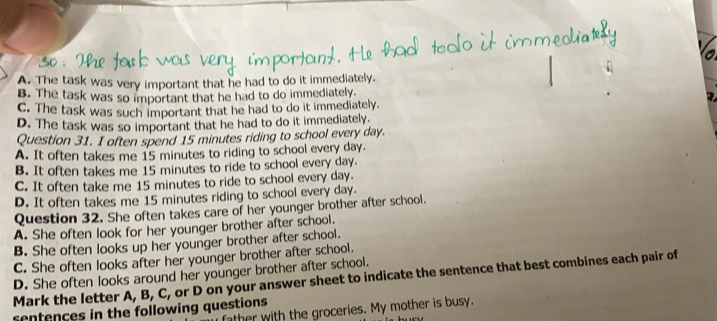 30. The task was very important. He had to do it immediately
A. The task was very important that he had to do it immediately.
B. The task was so important that he had to do immediately.
C. The task was such important that he had to do it immediately.
D. The task was so important that he had to do it immediately.
Question 31. I often spend 15 minutes riding to school every day.
A. It often takes me 15 minutes to riding to school every day.
B. It often takes me 15 minutes to ride to school every day.
C. It often take me 15 minutes to ride to school every day.
D. It often takes me 15 minutes riding to school every day.
Question 32. She often takes care of her younger brother after school.
A. She often look for her younger brother after school.
B. She often looks up her younger brother after school.
C. She often looks after her younger brother after school.
D. She often looks around her younger brother after school.
Mark the letter A, B, C, or D on your answer sheet to indicate the sentence that best combines each pair of
sentences in the following questions
father with the groceries. My mother is busy.